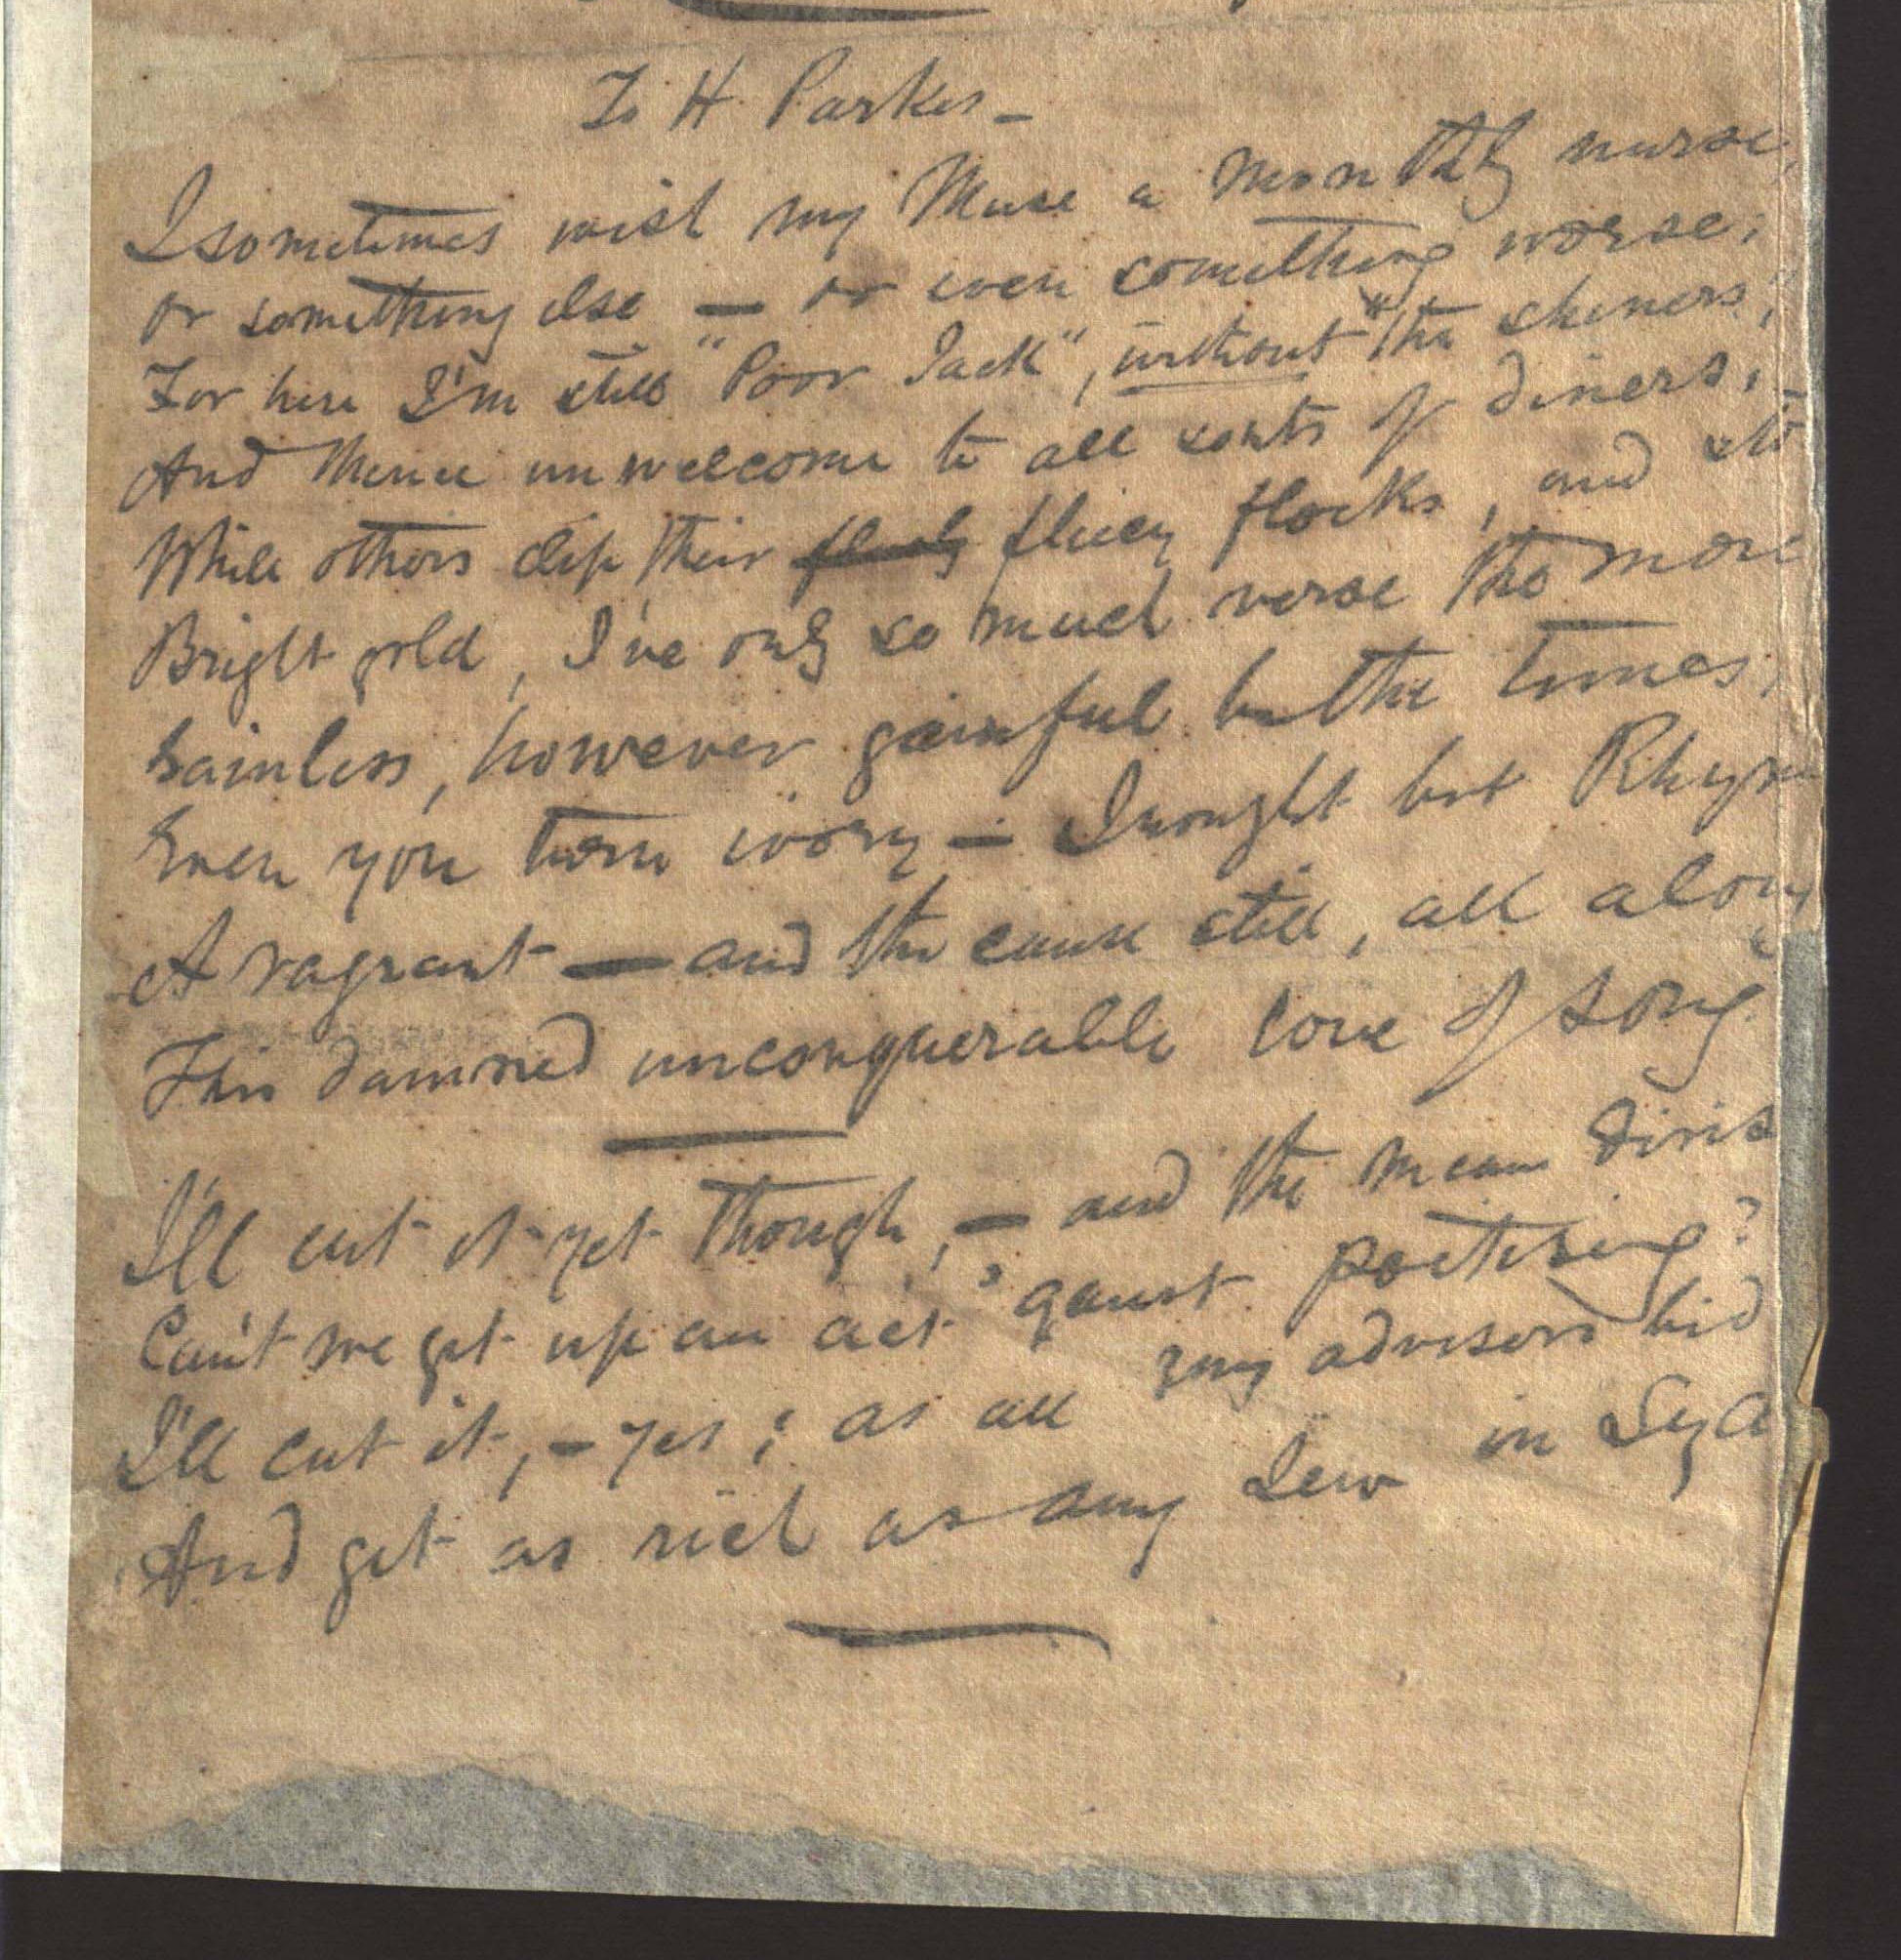 To H Parkes —
I sometimes wish my Muse a monthly nurse,
or something else — or even something worse;
For here I'm still "Poor Jack", without "the shiners;
And thence unwelcome to all sorts of diners;
While others clip their fleecy flocks, and sto
Bright gold, I've only so much verse the more
Gainless, however gainful be the times;
Even you turn ivory — I nought but Rhym
A vagrant — and the cause still, all along
This damned unconquerable love of song
I'll cut it yet though, — and the mean
Can't we get up an act 'gainst poetising?
I'll cut it, — yes; as all my advisors bid
And get as rich as any Jew in Syd